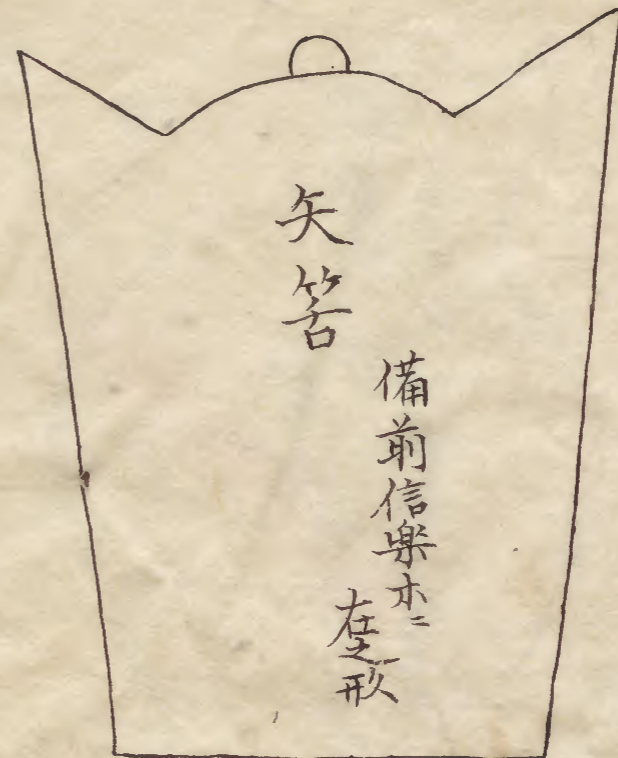 矢筈
備前信楽ホニ
在之形